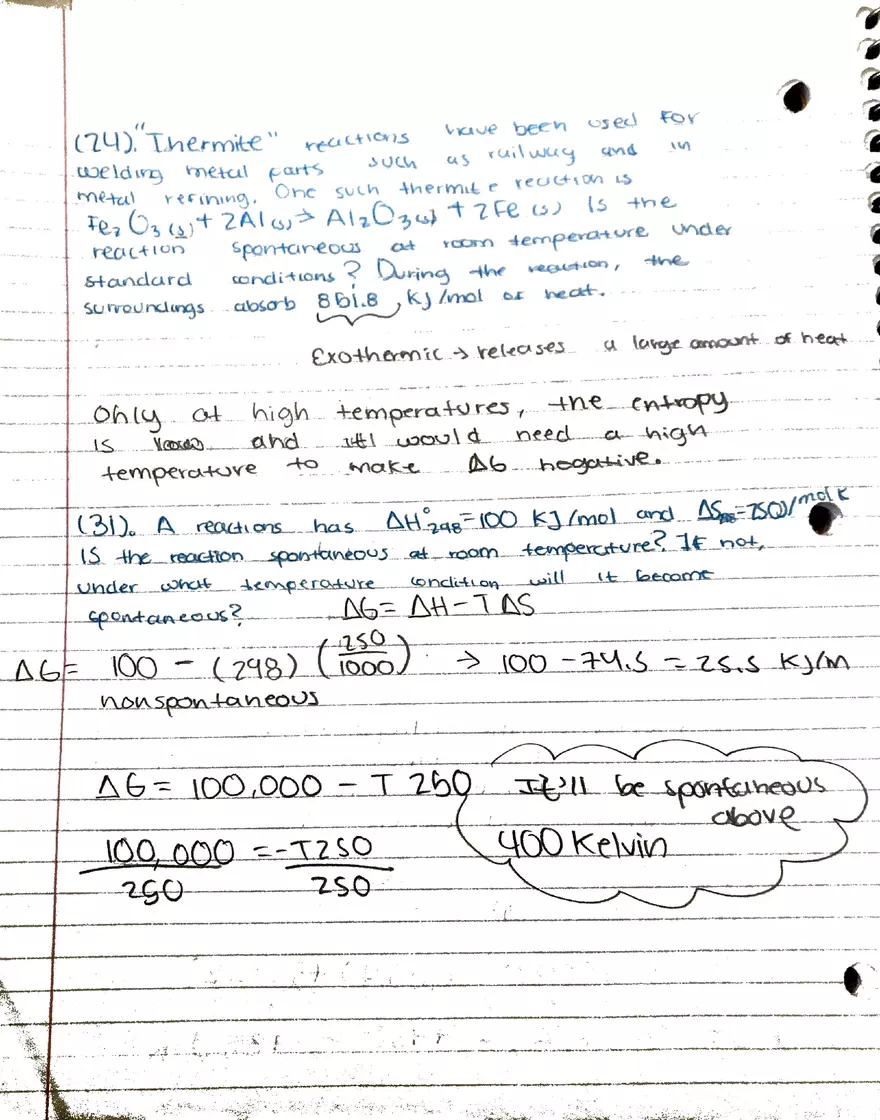 (24). "Thermite" reactions have been used for
welding metal parts such as railway and in
metal refining. One such thermite reaction is
Fe₂O₃(s) + 2Al(s) → Al₂O₃(s) + 2Fe(s) Is the
reaction spontaneous at room temperature under
standard conditions? During the reaction, the
surroundings absorb 851.8, KJ/mol of heat.
Exothermic → releases a large amount of heat
Only at high temperatures, the entropy
is and would need a high
temperature to make ΔG negative.
(31). A reactions has ΔH°298=100 KJ/mol and ΔS=250J/molK
Is the reaction spontaneous at room temperature? If not,
under what temperature condition will it become
spontaneous? ΔG = ΔH-TΔS
ΔG= 100 - (298) (250/1000) → 100 - 74.5 = 25.5 KJ/m
nonspontaneous
ΔG = 100,000 - T 250 It'll be spontaneous
above
100,000 = -T250 400 Kelvin
250 250